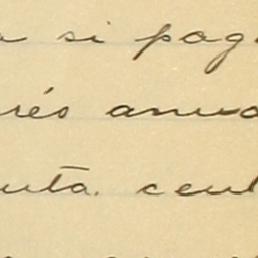 a si pag
rés anua
uta. cent